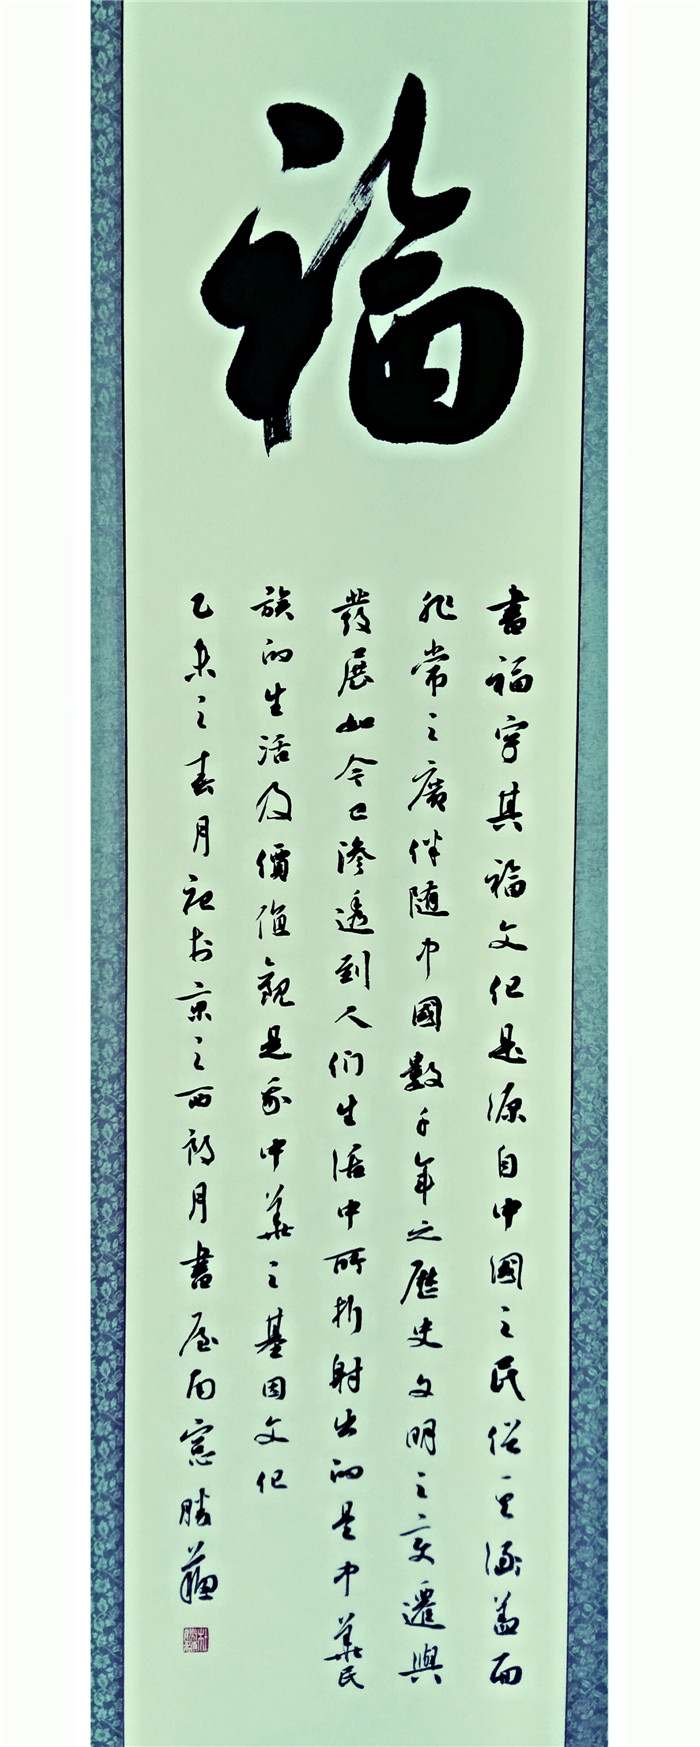 福
書福字其福文化是源自中國之民俗其涵盖面
非常之廣伴随中國數千年之歷史文明之变遷與
發展如今已滲透到人们生活中所折射出的是中華民
族的生活及價值觀是我中华之基因文化
乙未之春月在於京之西韵月書屋南窓勝蘓